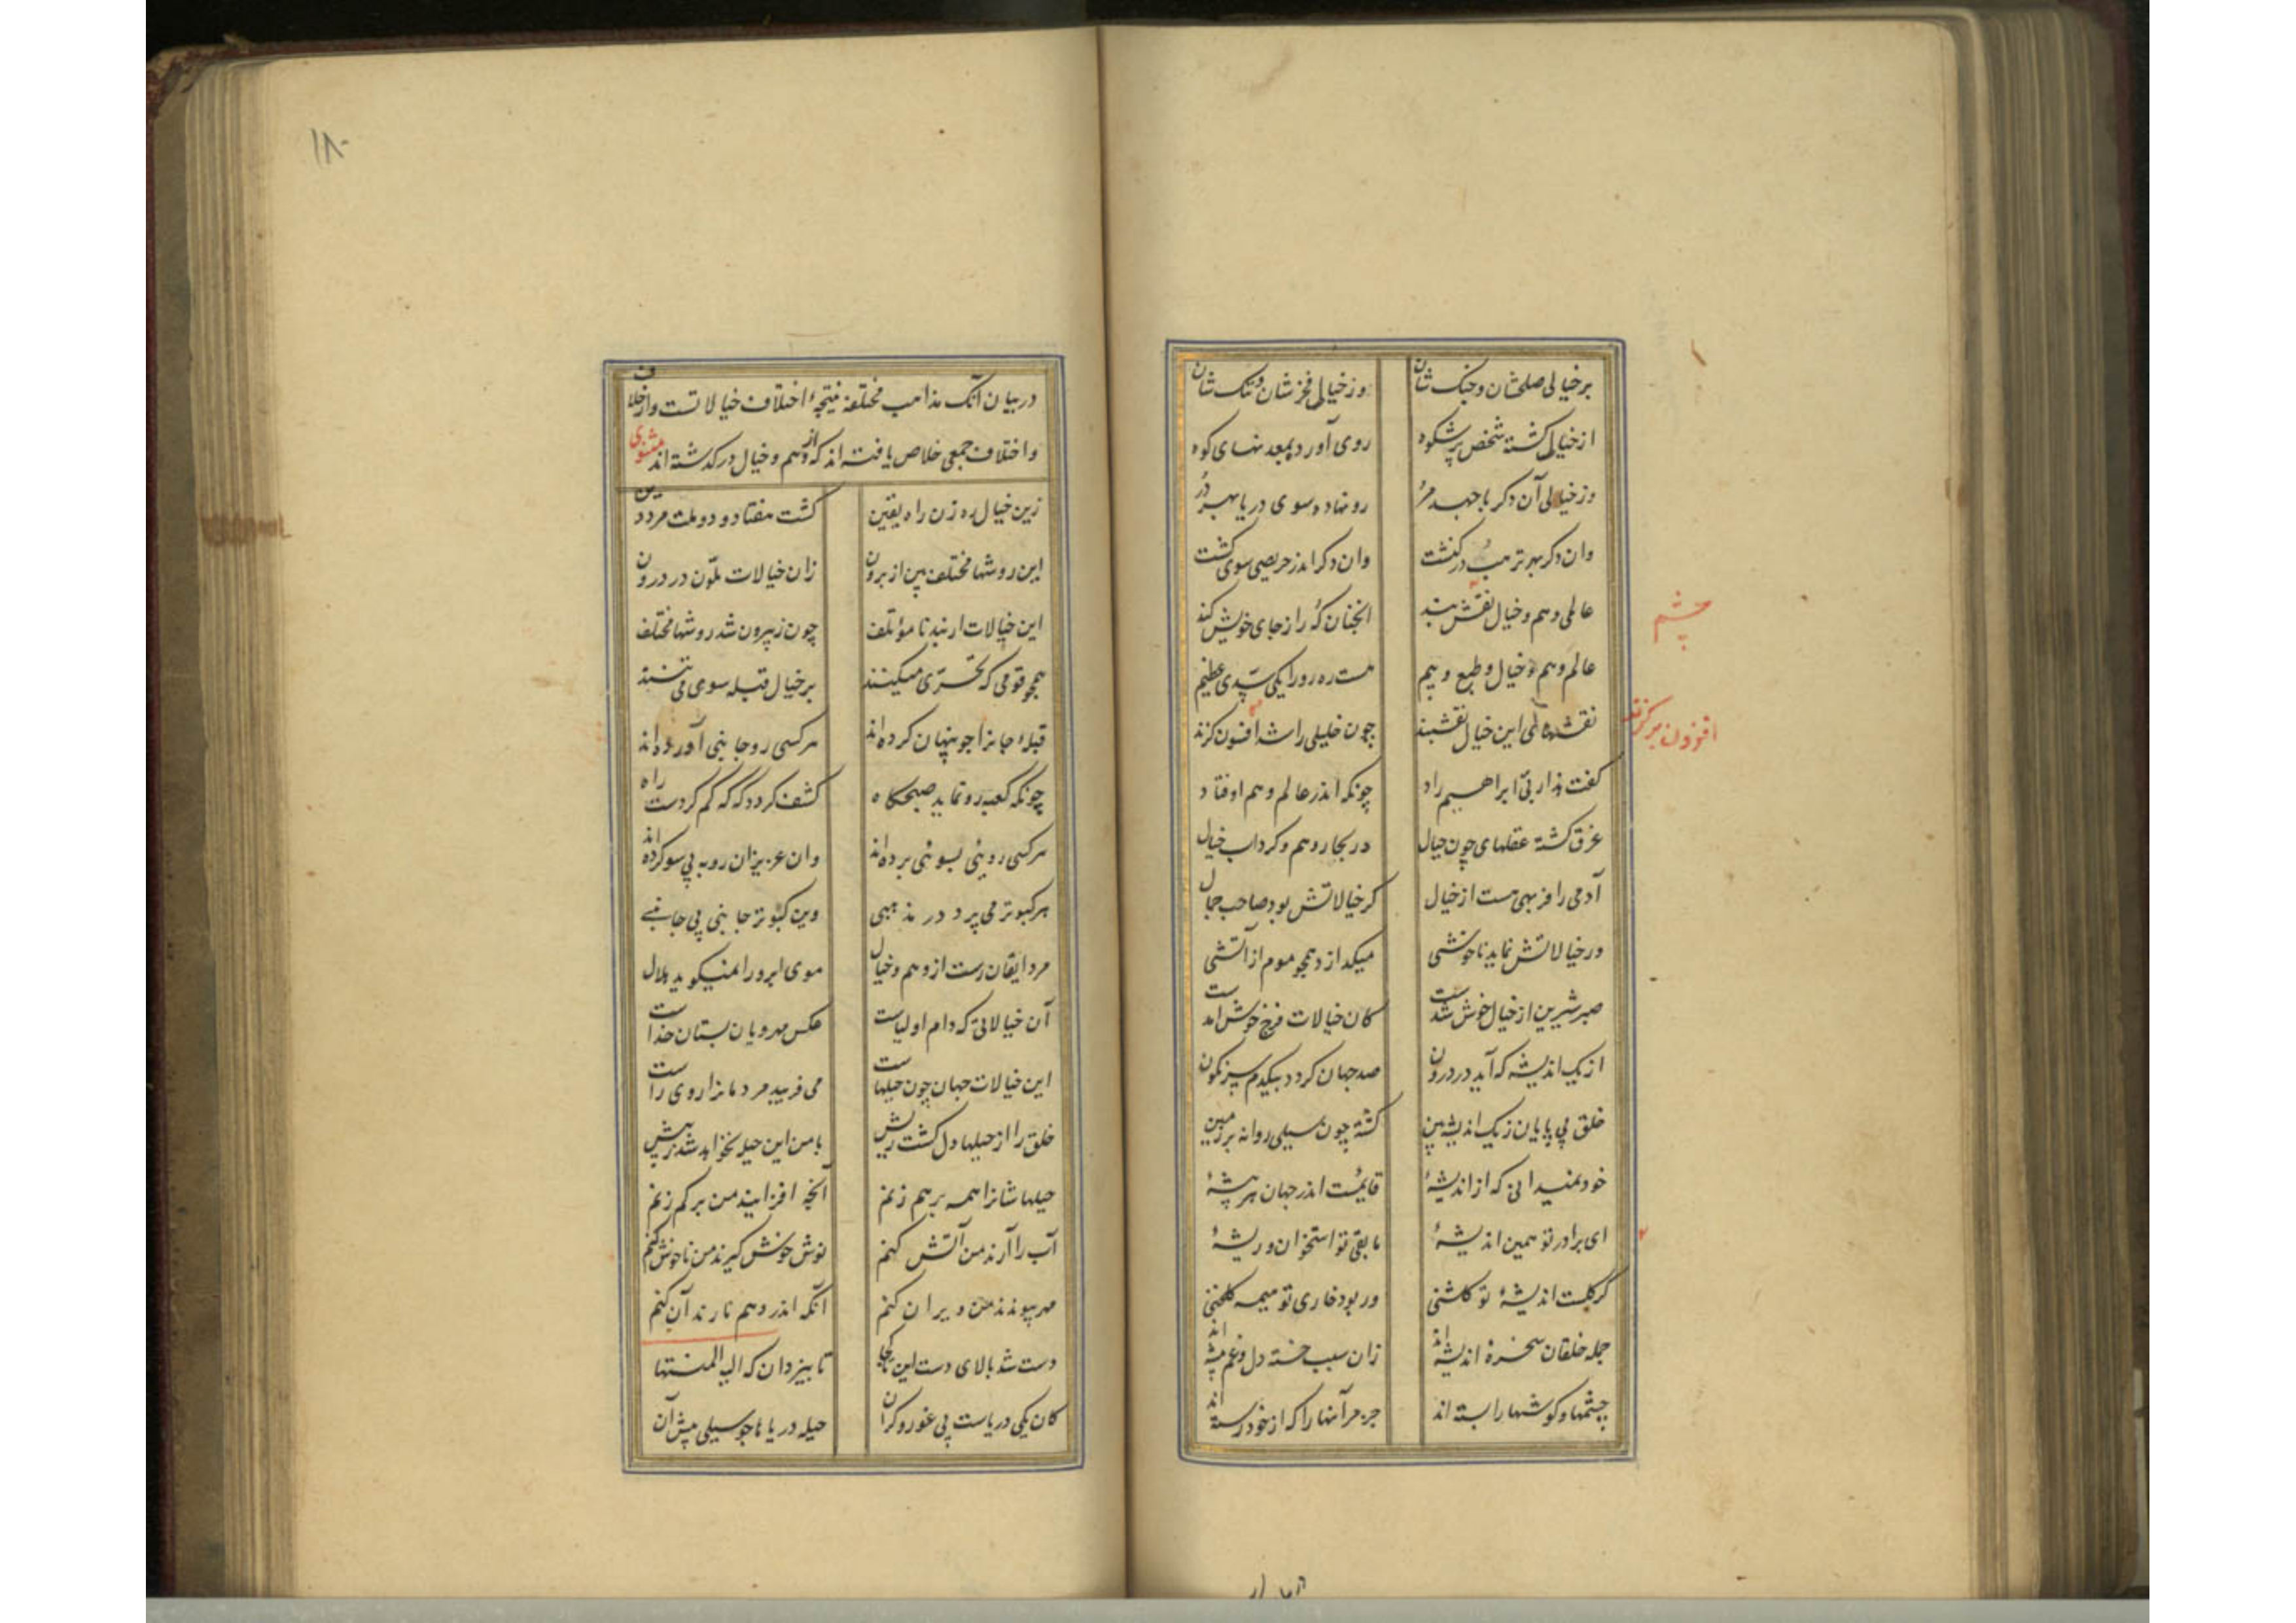 برخیالی صلحشان و جنک شان وز خیالی فخرشان و ننک شان
از خیالی کشته شخص پرشکوه روی آورده بمعدنهای کوه
وز خیالی آن دکر با جهد مر رو نهاده سوی دریا بهر در
وان دکر بهر ترهب در کنشت وان دکر اندر حریصی سوی کشت
عالمی وهم و خیال نقش بند انچنان که را ز جای خویش کند
عالم وهم و خیال و طبع و بیم هست ره رو را یکی سدی عظیم
نقشهای این خیال نقشبند چون خلیلی را شد افسون کزند
کفت هذا ربی ابراهیم راد چونکه اندر عالم وهم اوفتاد
غرق کشته عقلهای چون جبال در بحار وهم و کرداب خیال
آدمی را فربهی هست از خیال کر خیالاتش بود صاحب جمال
ور خیالاتش نماید ناخوشی میکدازد همچو موم از آتشی
صبر شیرین از خیال خوش شدست کان خیالات فرح خوش امدست
از یک اندیشه که آید در درون صد جهان کردد بیکدم سرنکون
خلق بی پایان ز یک اندیشه بین کشته چون سیلی روانه بر زمین
خود نمیدانی که از اندیشهٔ قایمست اندر جهان هر پیشهٔ
ای برادر تو همین اندیشهٔ مابقی تو استخوان و ریشهٔ
کر کلست اندیشهٔ تو کلشنی ور بود خاری تو هیمه کلخنی
جمله خلقان سخرهٔ اندیشه اند زان سبب خسته دل و غم پیشه اند
چشمها و کوشها را بسته اند جز مر آنها را که از خود رسته اند
چشم
افزون بر کزند
۱۸۰
در بیان آنک مذاهب مختلفه نتیجهٔ اختلاف خیالاتست و از خلاف
و اختلاف جمعی خلاص یافته اند که از وهم و خیال درکذشته اند مثنوی
زین خیال ره زن راه یقین کشت هفتاد و دو ملت مرد دین
این روشها مختلف بین از برون زان خیالات ملون در درون
این خیالات ار نبد نا مؤتلف چون ز بیرون شد روشها مختلف
همچو قومی که تحری میکنند بر خیال قبله سوی می تنند
قبلهٔ جانرا چو پنهان کرده اند هر کسی رو جانبی آورده اند
چونکه کعبه رو نماید صبحکاه کشف کردد که که کم کردست راه
هر کسی رویی بسوئی برده اند وان عزیزان رو به بی سو کرده اند
هر کبوتر می پرد در مذهبی وین کبوتر جانبی بی جانبی
مرد ایقان رست از وهم و خیال موی ابرو را نمیکوید هلال
آن خیالاتی که دام اولیاست عکس مه رویان بستان خداست
این خیالات جهان چون حیلهاست می فریبد مردمانرا روی راست
خلق را از حیلها دل کشت ریش با من این حیله نخواهد شد ز پیش
حیلها شانرا همه برهم زنم آنچه افزایند من بر کم زنم
آب را آرند من آتش کنم نوش خوش کیرند من ناخوش کنم
مهر پیوندند من ویران کنم آنکه اندر وهم نارند آن کنم
دست شد بالای دست این تا کجا تا بیزدان که الیه المنتها
کان یکی دریاست بی غور و کران حیله دریاها چو سیلی پیش آن